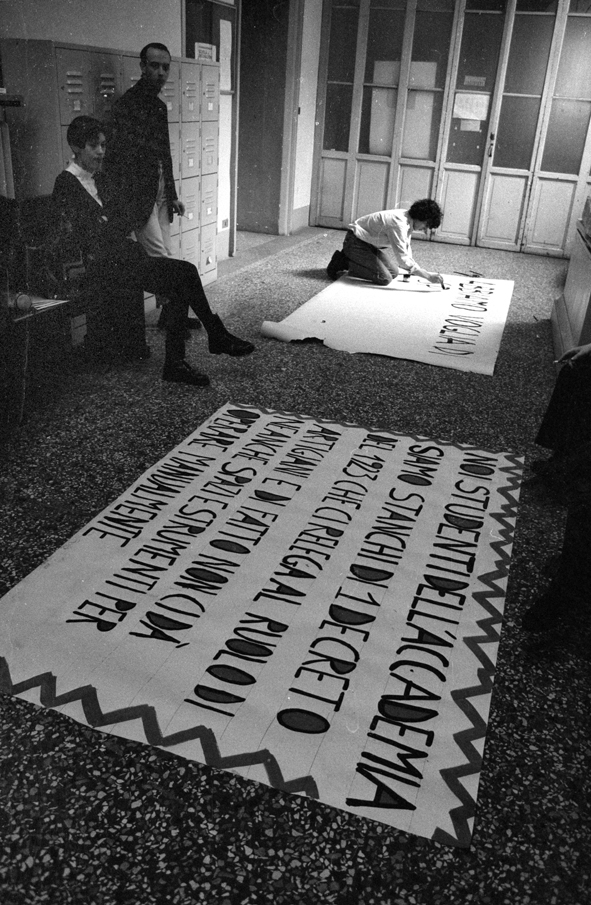 NOI STUDENTI DELL'ACCADEMIA
SIAMO STANCHI DI 1 DECRETO
DEL 1923 CHE CI RELEGA AL RUOLO DI
ARTIGIANI E DI FATTO NON CI DÀ
NEANCHE SPAZI E STRUMENTI PER
OPERARE MANUALMENTE
VOGLIA DI